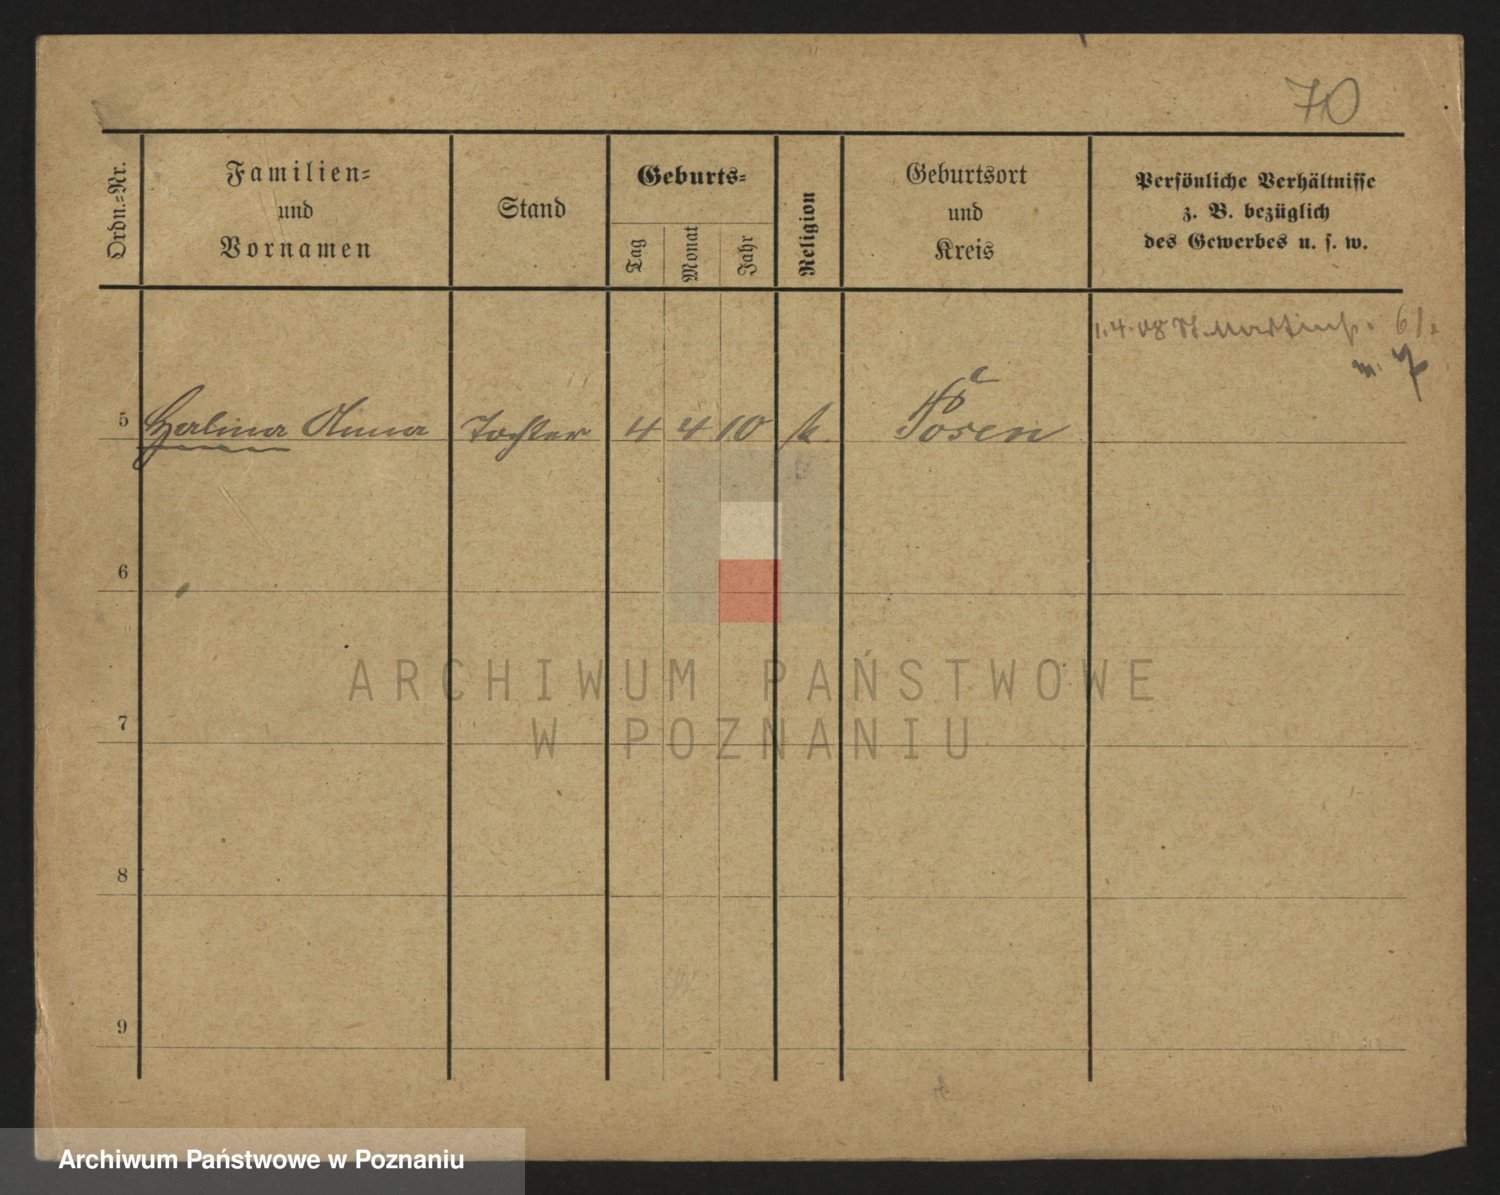 70
Ordn.-Nr.
Familien-
und
Vornamen
Stand
Geburts-
Tag
Monat
Jahr
Religion
Geburtsort
und
Kreis
Persönliche Verhältnisse
z. B. bezüglich
des Gewerbes u. s. w.
1.4.08 St. Martinstr. 61.
5 Halina Anna Tochter 4 4 10 k. Posen
6
ARCHIWUM PAŃSTWOWE
W POZNANIU
7
8
9
Archiwum Państwowe w Poznaniu